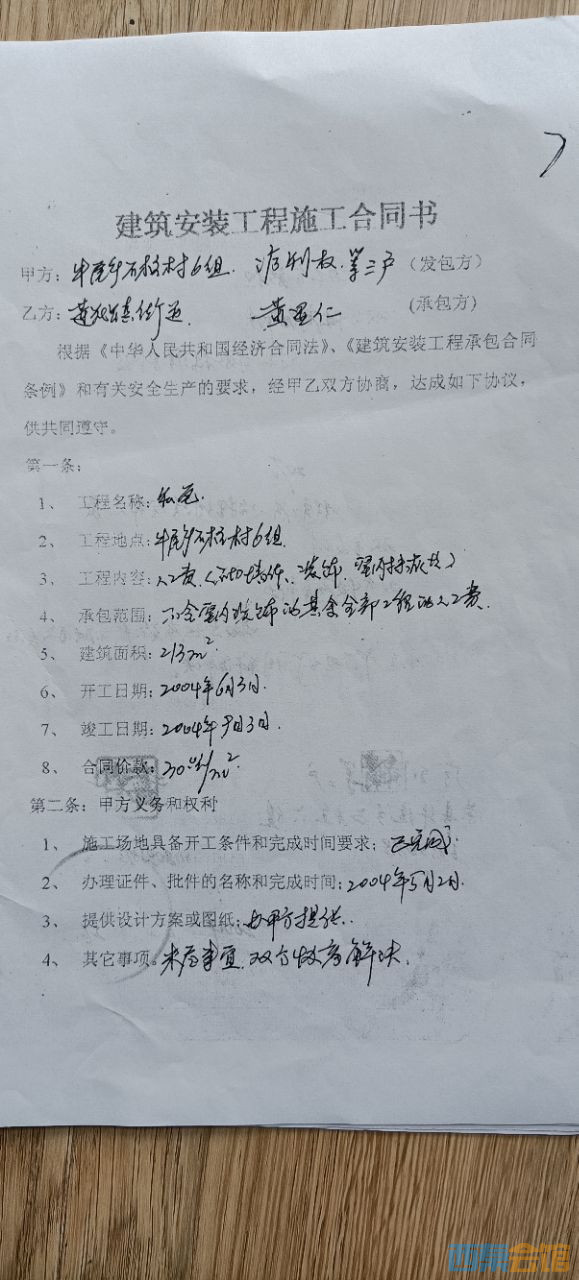 建筑安装工程施工合同书
甲方：牛尾乡石柱村6组. 第三户（发包方）
乙方：街道. 黄星仁 (承包方)
根据《中华人民共和国经济合同法》、《建筑安装工程承包合同
条例》和有关安全生产的要求，经甲乙双方协商，达成如下协议，
供共同遵守。
第一条：
1、 工程名称：私宅.
2、 工程地点：牛尾乡石柱村6组.
3、 工程内容：人工费
4、 承包范围：不含室内装饰的其余全部工程的人工费.
5、 建筑面积：213m².
6、 开工日期：2004年6月3日.
7、 竣工日期：2004年9月3日.
8、 合同价款：/m².
第二条：甲方义务和权利
1、 施工场地具备开工条件和完成时间要求：已完成.
2、 办理证件、批件的名称和完成时间：2004年5月2日.
3、 提供设计方案或图纸：由甲方提供.
4、 其它事项。未尽事宜.双方协商解决.
西祠会馆